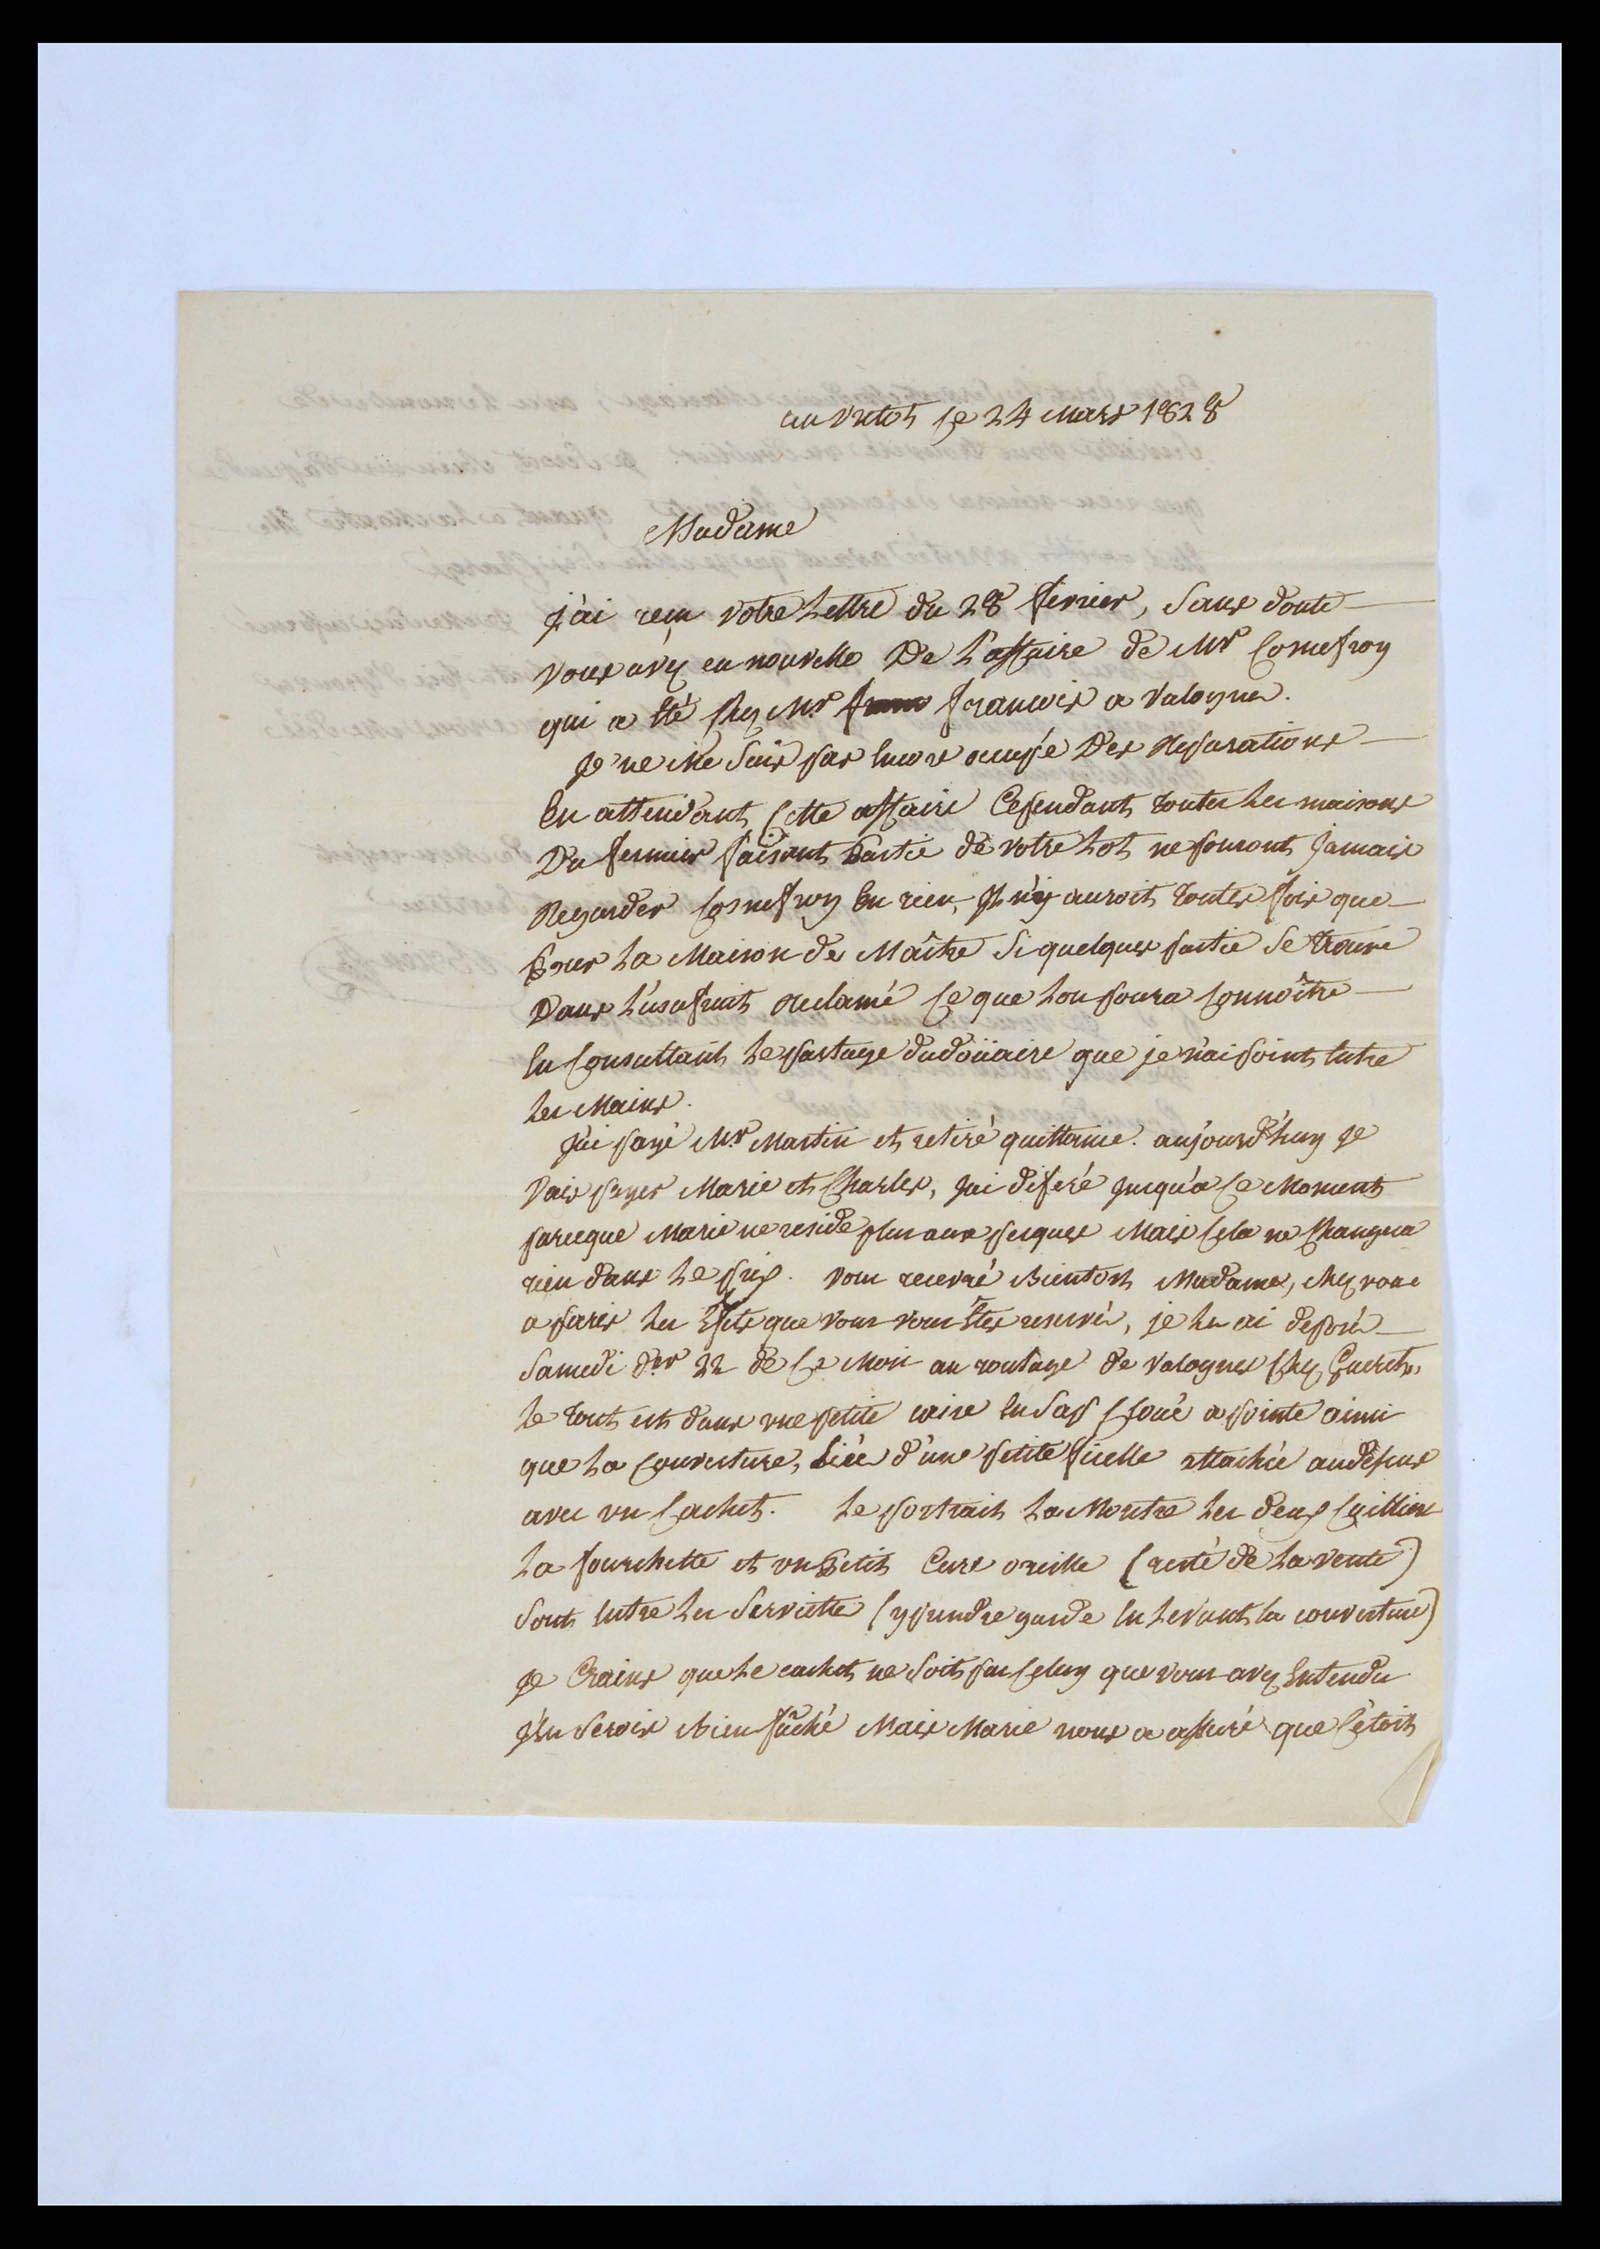 au vretot le 24 Mars 1828
Madame
j'ai reçu votre Lettre du 28 fevrier, Sans doute
vous avez eu nouvelle De L'affaire de Mr Cosnefroy
qui a Eté chez Mr francois a Valognes.
Je ne Me Suis pas Encore occupé Des Reparations
En attendant Cette affaire Cependant toutes Les maisons
Du fermier faisant Partie de votre Lot ne pouront Jamais
Regarder Cosnefroy En rien, Il n'y auroit toutes fois que
Pour La Maison de Maître Si quelques partie Se trouve
Dans L'usufruit reclamé Ce que Lon poura Connoître
En Consultant Le partage du doüaire que je n'ai point Entre
Les Mains.
J'ai payé Mr Martin et retiré quittance. aujourd'huy Je
Vais payer Marie et Charles, J'ai diferé Jusqu'a Ce Moment
parceque Marie ne reside plus aux perques Mais Cela ne Changera
rien dans Le prix. vous recevré Bientost Madame, chez vous
a paris Les Effets que vous vous Etes reservés, je Les ai deposé
Samedi der 22 de Ce Mois au roulage de Valognes Chez
Le tout est dans une petite caise En Sap Cloué a pointe ainsi
que La Couverture, Liée d'une petite ficelle attachée audessus
avec un Cachet. Le portrait La Montre Les deux Cuilliers
La fourchette et un Petit Cure oreille (resté de La vente)
Sont Entre Les Serviette (y prendre garde En Levant la couverture)
Je Crains que Le cachet ne Soit pas Celuy que vous avez Entendu
J'En Serois Bien fâché Mais Marie nous a assuré que C'étoit